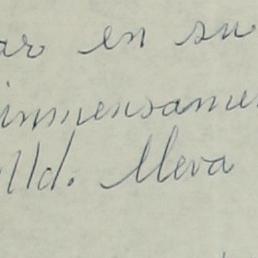 ar en su
inmensamen
Ud. lleva